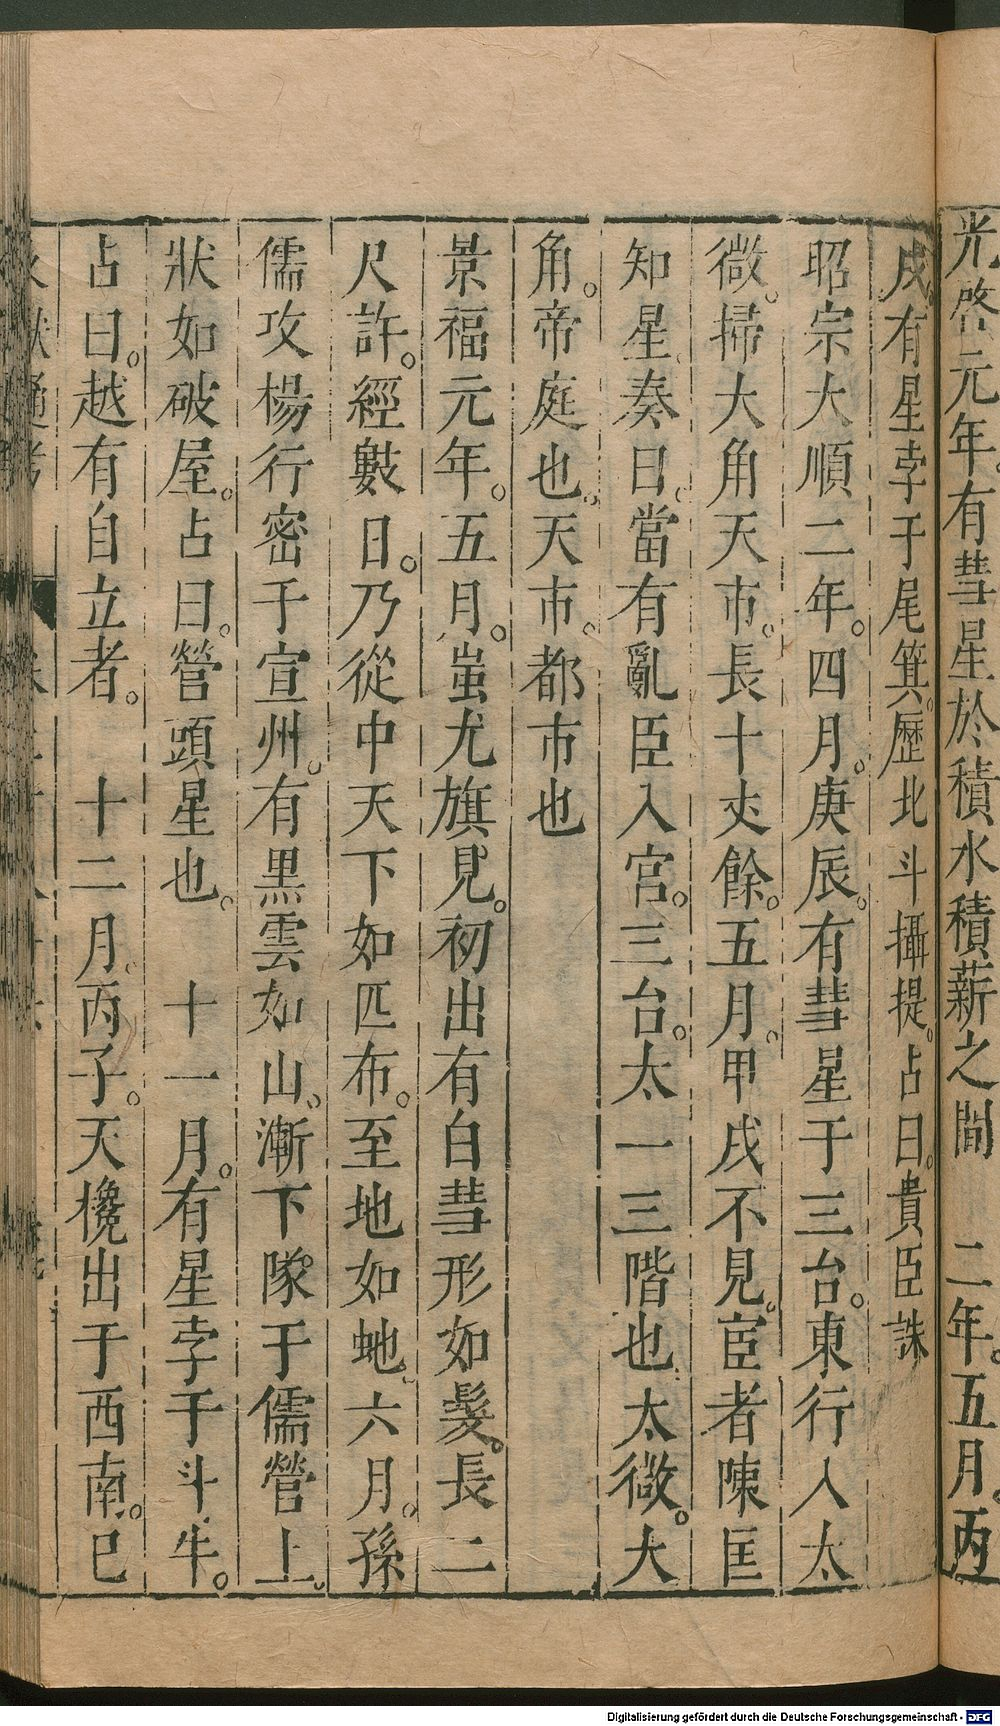 光啓元年。有彗星於積水積薪之間　二年。五月。丙
戌。有星孛于尾箕。歷北斗攝提。占曰。貴臣誅
昭宗大順二年。四月。庚辰。有彗星于三台。東行入太
微。掃大角天市。長十丈餘。五月。甲戌不見。宦者陳匡
知星。奏曰。當有亂臣入宮。三台。太一三階也。太微。大
角。帝庭也。天市。都市也
景福元年。五月。蚩尤旗見。初出有白彗形如髮。長二
尺許。經數日。乃從中天下如匹布。至地如虵。六月。孫
儒攻楊行密于宣州。有黑雲如山。漸下隊于儒營上。
狀如破屋。占曰。營頭星也。　十一月。有星孛于斗牛。
占曰。越有自立者。　十二月。丙子。天欃出于西南。己
Digitalisierung gefördert durch die Deutsche Forschungsgemeinschaft - DFG